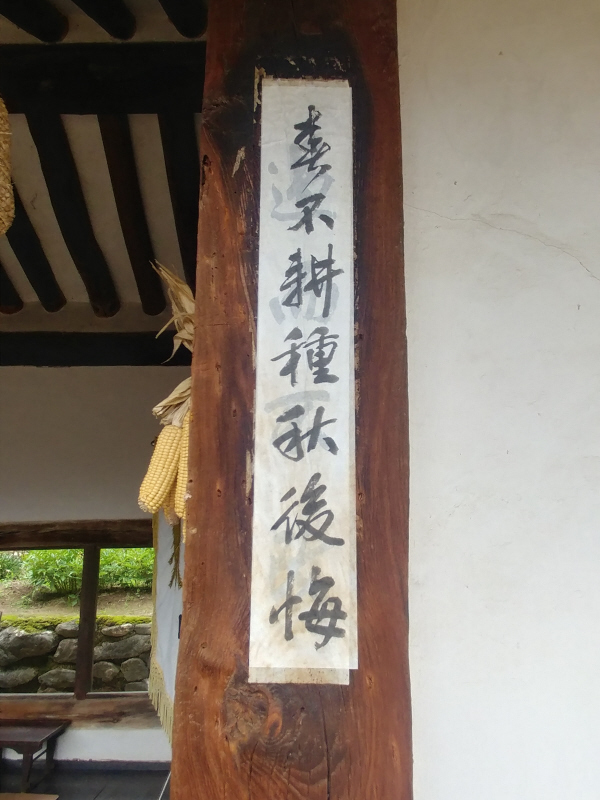 春不耕種秋後悔